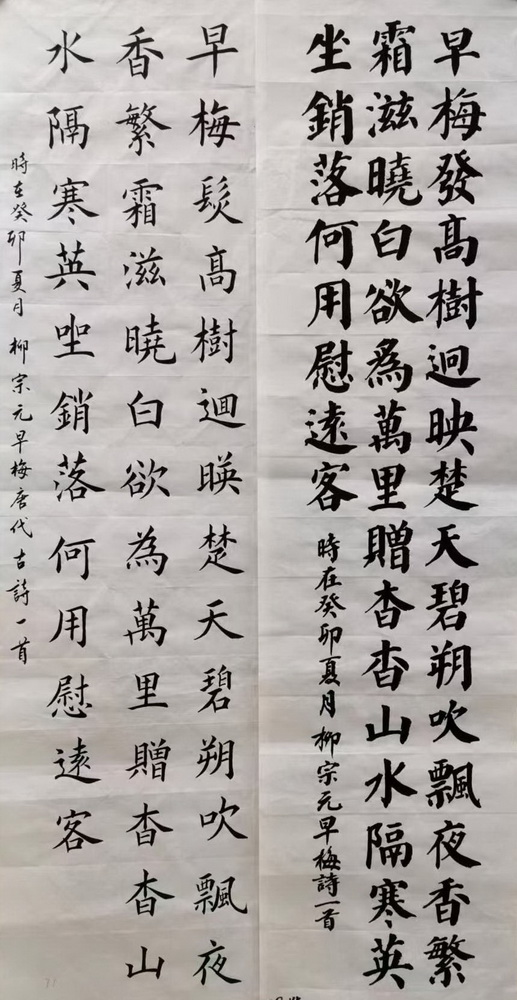 早梅發髙樹迥映楚天碧朔吹飄夜香繁
霜滋曉白欲為萬里贈杳杳山水隔寒英
坐銷落何用慰遠客
時在癸卯夏月柳宗元早梅詩一首
早梅髮髙樹迴暎楚天碧朔吹飄夜
香繁霜滋曉白欲為萬里贈杳杳山
水隔寒英坐銷落何用慰遠客
時在癸卯夏月 柳宗元早梅唐代古詩一首